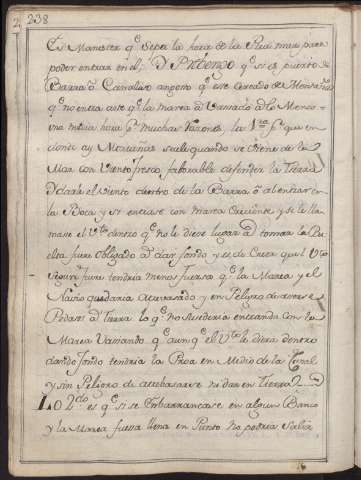 2 238
Es Menester q.e Sepa la hora de la Plea mar para
poder entrar en el; D Prebengo q.e si es puerto de
Barra ô Canalizo angosto q.e este Cercado de Montañas
q.e no entra aste q.e la marea aì Vaziado a lo Menos
una media hora p.r muchas razones, la 1.ra p.r que en
donde ay Montañas suele quando se Viene de la
Mar con Viento fresco faborable defender la Tierra
D darle el viento dentro de la Barra ô al entrar en
la Boca y si entrase con marea Creciente y se le lla-
mase el V.to dentro q.e no le diese lugar â tomar la Bu-
elta fuere Obligado â dar fondo y es de Creer que l V.to
Segun fuere tendria menos fuersa q.e la Marea y el
Navio quedaria atrabesado y en Peligro de
â Tierra lo q.e no Susederia entrando con la
Marea Vaziando q.e aunq.e el V.to le diera dentro
dando fondo tendria la Proa en Medio de la Canal
y sin Peligro de atrabesarse ni dar en Tierra
Lo 2.do es q.e si se Embarrancase en algun Banco
y la Marea fuesa llena en Punto no podria Salir